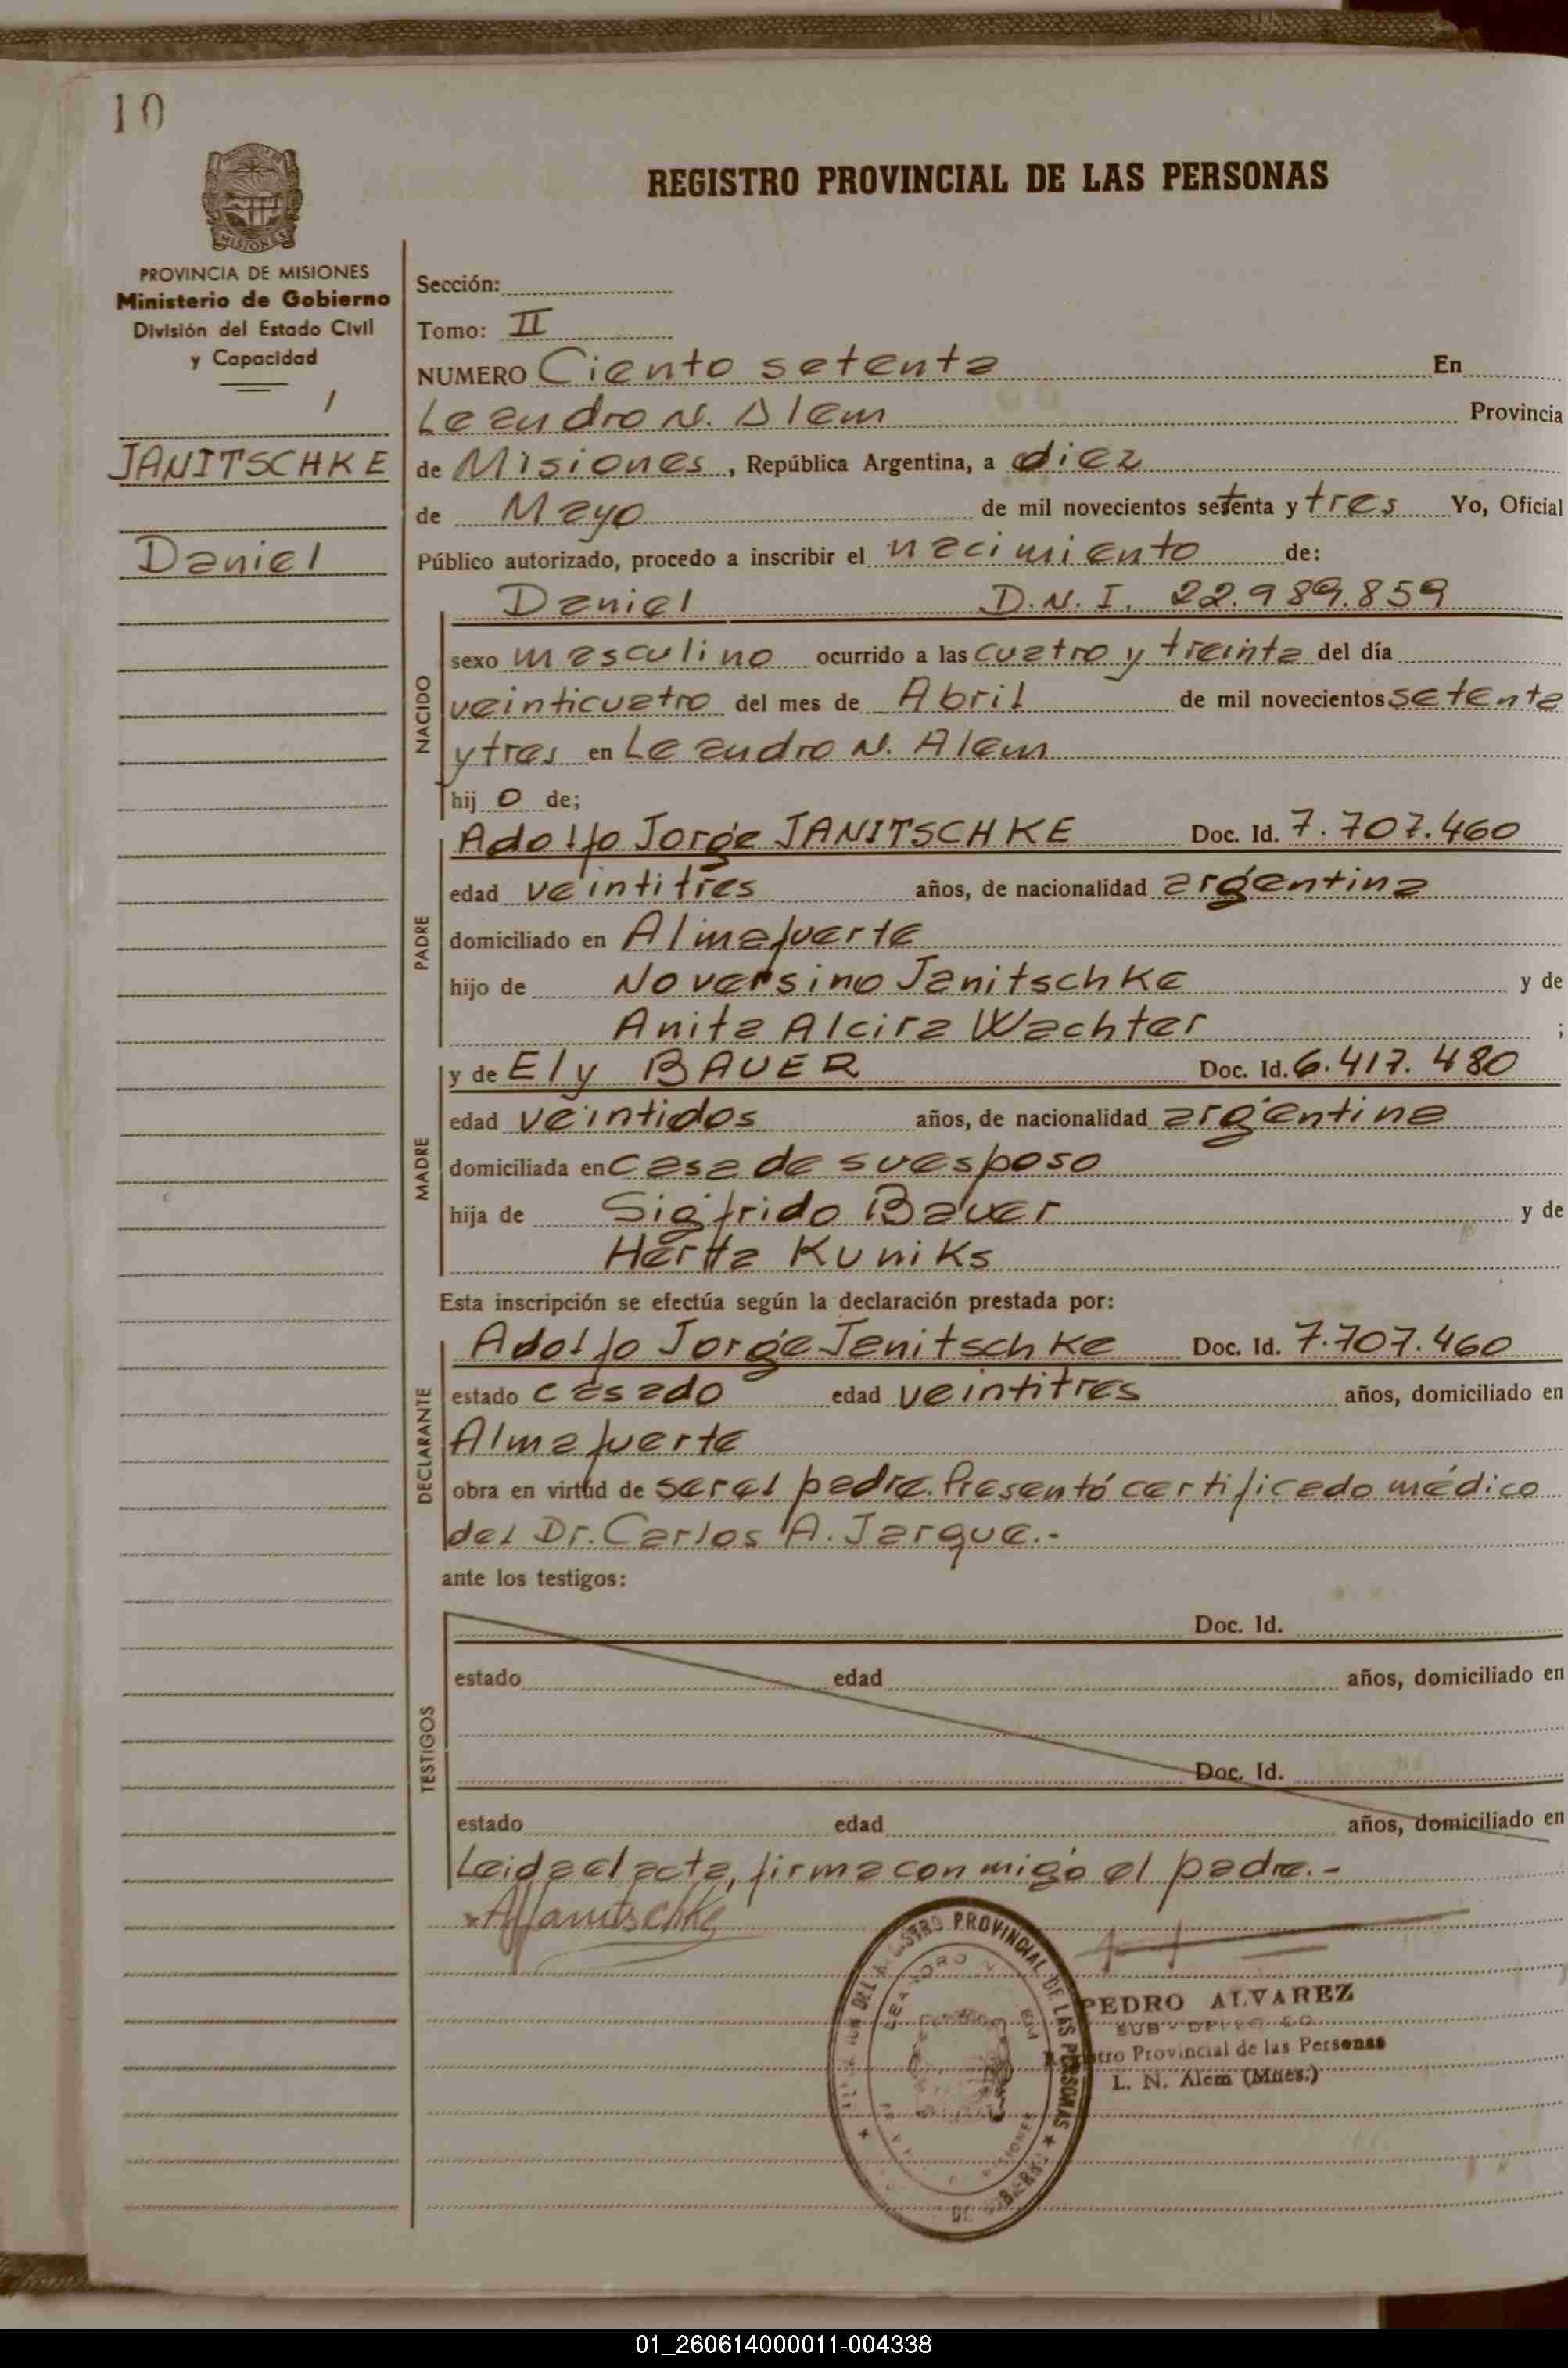 10
MISIONES
REGISTRO PROVINCIAL DE LAS PERSONAS
PROVINCIA DE MISIONES
Ministerio de Gobierno
División del Estado Civil
y Capacidad
JANITSCHKE
Daniel
Sección:
Tomo: II
NUMERO Ciento setenta En
Leandro N. Alem Provincia
de Misiones, República Argentina, a diez
de Mayo de mil novecientos setenta y tres Yo, Oficial
Público autorizado, procedo a inscribir el nacimiento de:
Daniel D.N.I. 22.989.859
NACIDO
sexo masculino ocurrido a las cuatro y treinta del día
veinticuatro del mes de Abril de mil novecientos setenta
y tres en Leandro N. Alem
hij o de;
PADRE
Adolfo Jorge JANITSCHKE Doc. Id. 7.707.460
edad veintitres años, de nacionalidad argentina
domiciliado en Almafuerte
hijo de Noversino Janitschke y de
Anita Alcira Wachter ;
MADRE
y de Ely BAUER Doc. Id. 6.417.480
edad veintidos años, de nacionalidad argentina
domiciliada en casa de su esposo
hija de Sigfrido Bauer y de
Hertta Kuniks
Esta inscripción se efectúa según la declaración prestada por:
DECLARANTE
Adolfo Jorge Janitschke Doc. Id. 7.707.460
estado casado edad veintitres años, domiciliado en
Almafuerte
obra en virtud de ser el padre. Presentó certificado médico
del Dr. Carlos A. Jarque.-
ante los testigos:
TESTIGOS
Doc. Id.
estado edad años, domiciliado en
Doc. Id.
estado edad años, domiciliado en
Leida el acta, firma conmigo el padre.-
AJJanitschke
REGISTRO PROVINCIAL DE LAS PERSONAS
PEDRO ALVAREZ
SUB-DELEGADO
Registro Provincial de las Personas
L. N. Alem (Mnes.)
01_260614000011-004338